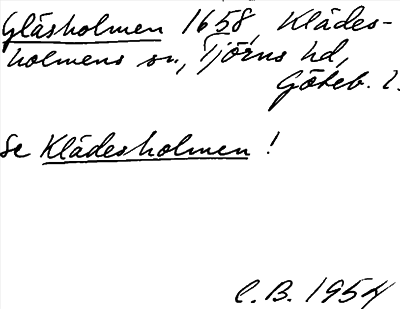 Gläsholmen 1658, Klädes-
holmens sn, Tjörns hd,
Göteb. l.
Se Klädesholmen !
C.B. 1954